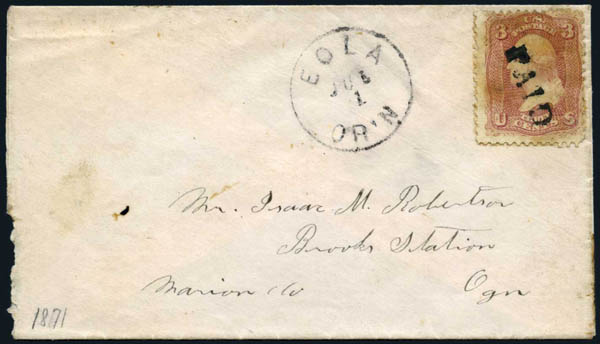 EOLA
OR'N
1
3 U.S. POSTAGE 3
PAID
U CENTS S
Mr. Isaac M. Robertson
Brooks Station
Marion Co Ogn
1871